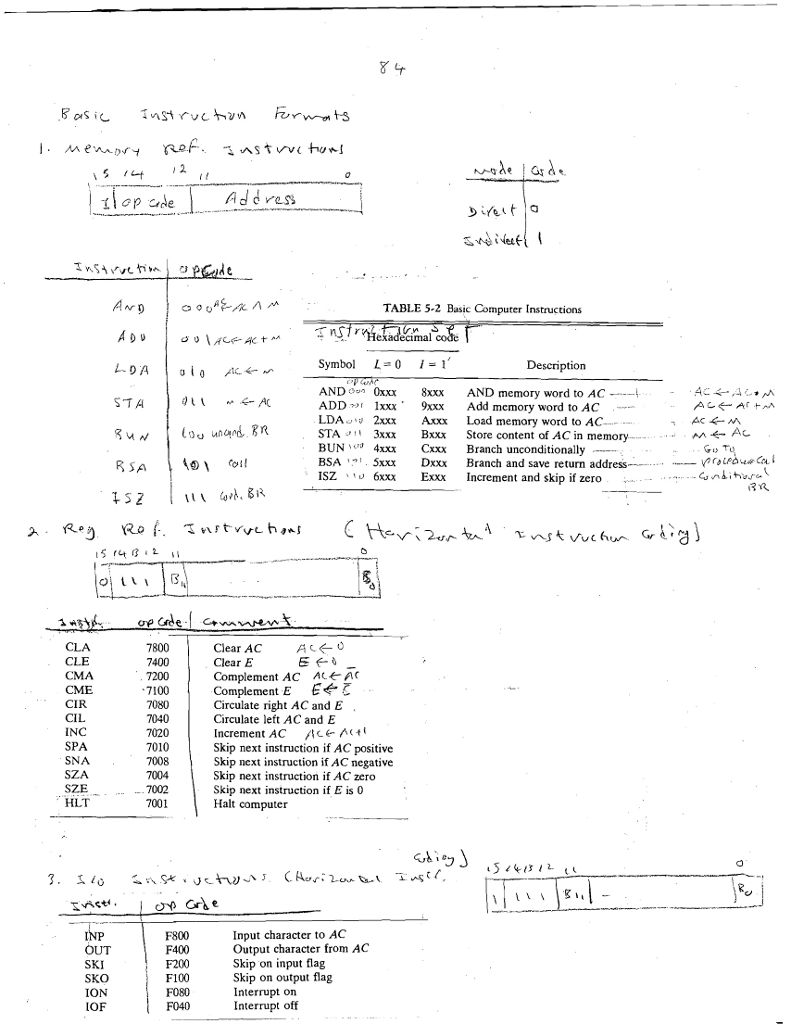 84
Basic Instruction Formats
1. Memory Ref. Instructions
15 14 12 11 0
I op code Address
Mode Code
Direct 0
Indirect 1
Instruction OpCode
AND 000 AC ← AC ∧ M
ADD 001 AC ← AC + M
LDA 010 AC ← M
STA 011 M ← AC
BUN 100 uncond. BR
BSA 101 call
ISZ 111 Cond. BR
TABLE 5-2 Basic Computer Instructions
Instruction Set
Hexadecimal code
Symbol I = 0 I = 1 Description
opcode
AND 000 0xxx 8xxx AND memory word to AC AC ← AC ∧ M
ADD 001 1xxx 9xxx Add memory word to AC AC ← AC + M
LDA 010 2xxx Axxx Load memory word to AC AC ← M
STA 011 3xxx Bxxx Store content of AC in memory M ← AC
BUN 100 4xxx Cxxx Branch unconditionally Go To
BSA 101 5xxx Dxxx Branch and save return address Procedure Call
ISZ 110 6xxx Exxx Increment and skip if zero Conditional BR
2. Reg. Ref. Instructions (Horizontal instruction coding)
15 14 13 12 11 0
0 111 B11 B0
Instr. op Code comment
CLA 7800 Clear AC AC ← 0
CLE 7400 Clear E E ← 0
CMA 7200 Complement AC AC ← A̅C̅
CME 7100 Complement E E ← E̅
CIR 7080 Circulate right AC and E
CIL 7040 Circulate left AC and E
INC 7020 Increment AC AC ← AC+1
SPA 7010 Skip next instruction if AC positive
SNA 7008 Skip next instruction if AC negative
SZA 7004 Skip next instruction if AC zero
SZE 7002 Skip next instruction if E is 0
HLT 7001 Halt computer
3. I/O Instructions (Horizontal Instr. Coding)
15 14 13 12 11 0
1 111 B11 B0
Instr. Op Code
INP F800 Input character to AC
OUT F400 Output character from AC
SKI F200 Skip on input flag
SKO F100 Skip on output flag
ION F080 Interrupt on
IOF F040 Interrupt off